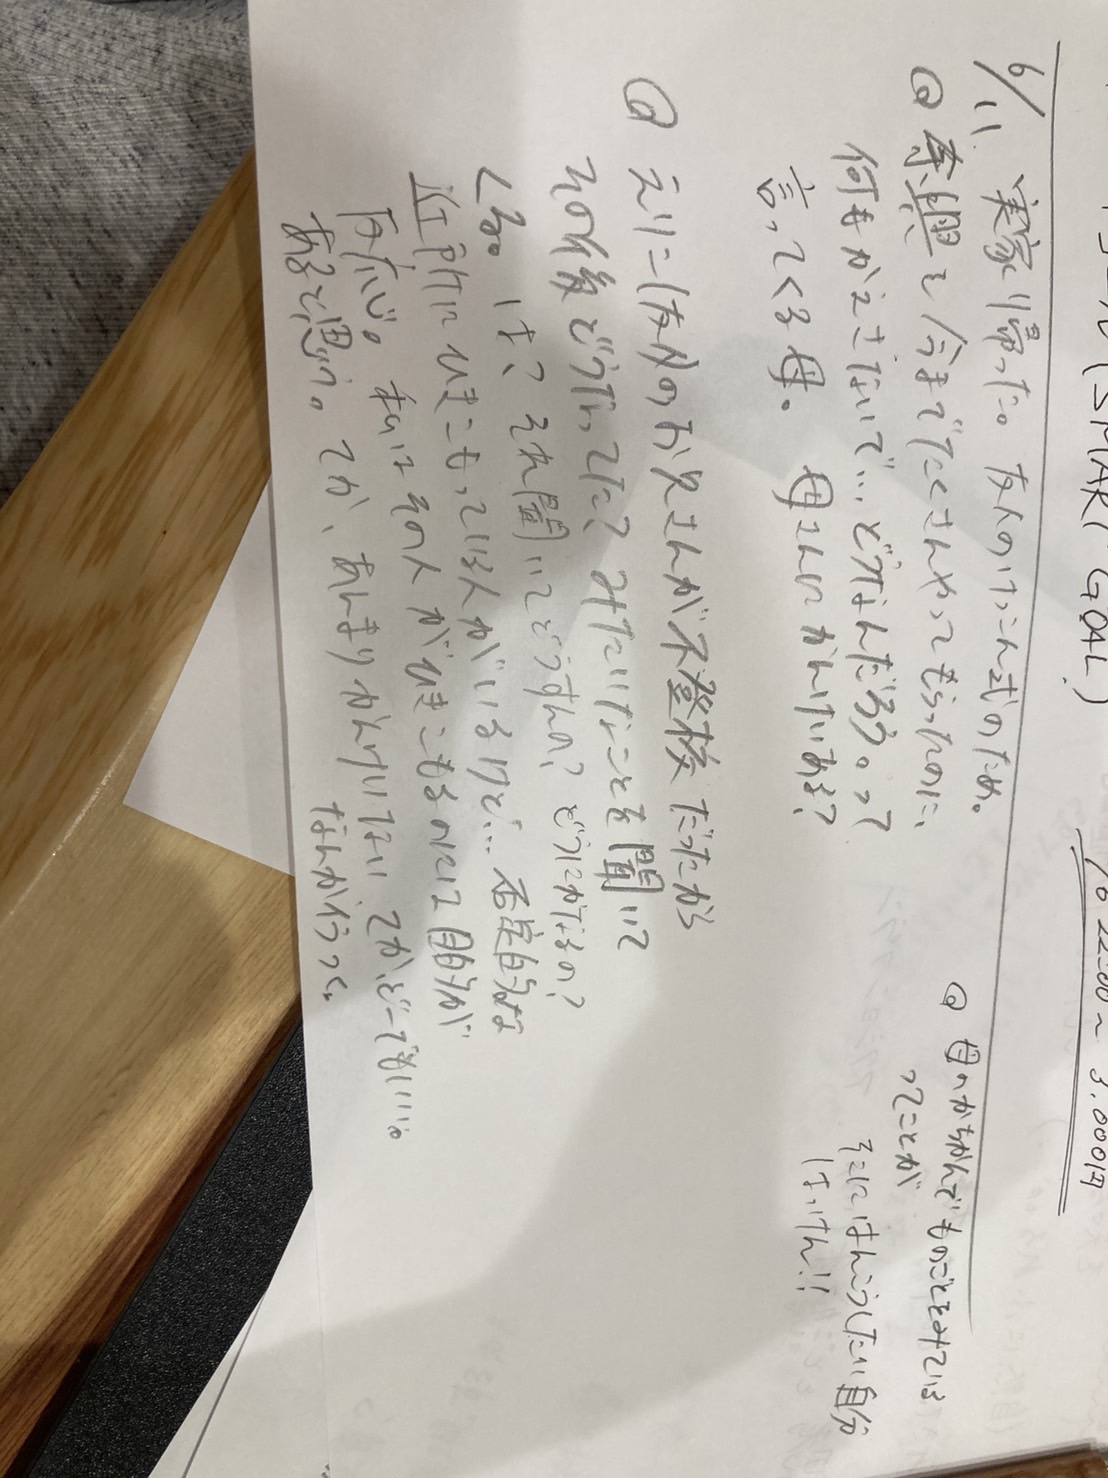 (SMART GOAL)
22:00〜 3,000円
6/11. 実家り帰った。友人のけっこん式のため。
寿輿と今までたくさんやってもらったのに、
何もかえさないで…どうなんだろう。って
言ってくる母。 母さんにかんけいある?
母のかちかんでものごとをみている
ってことが
そこにはんこうしたい自分
はっけん!!
えりこ(友人)のお兄さんが不登校だったから
その後どうなってた?みたいなことを聞いて
くる。は?それ聞いてどうすんの?どうにかなるの?
近所にひきこもっている人がいるけど… 否定的な
反応。私はその人がひきこもるのには目的が
あると思う。てか、あんまりかんけいない てか、どーでもいい。
なんか行って、